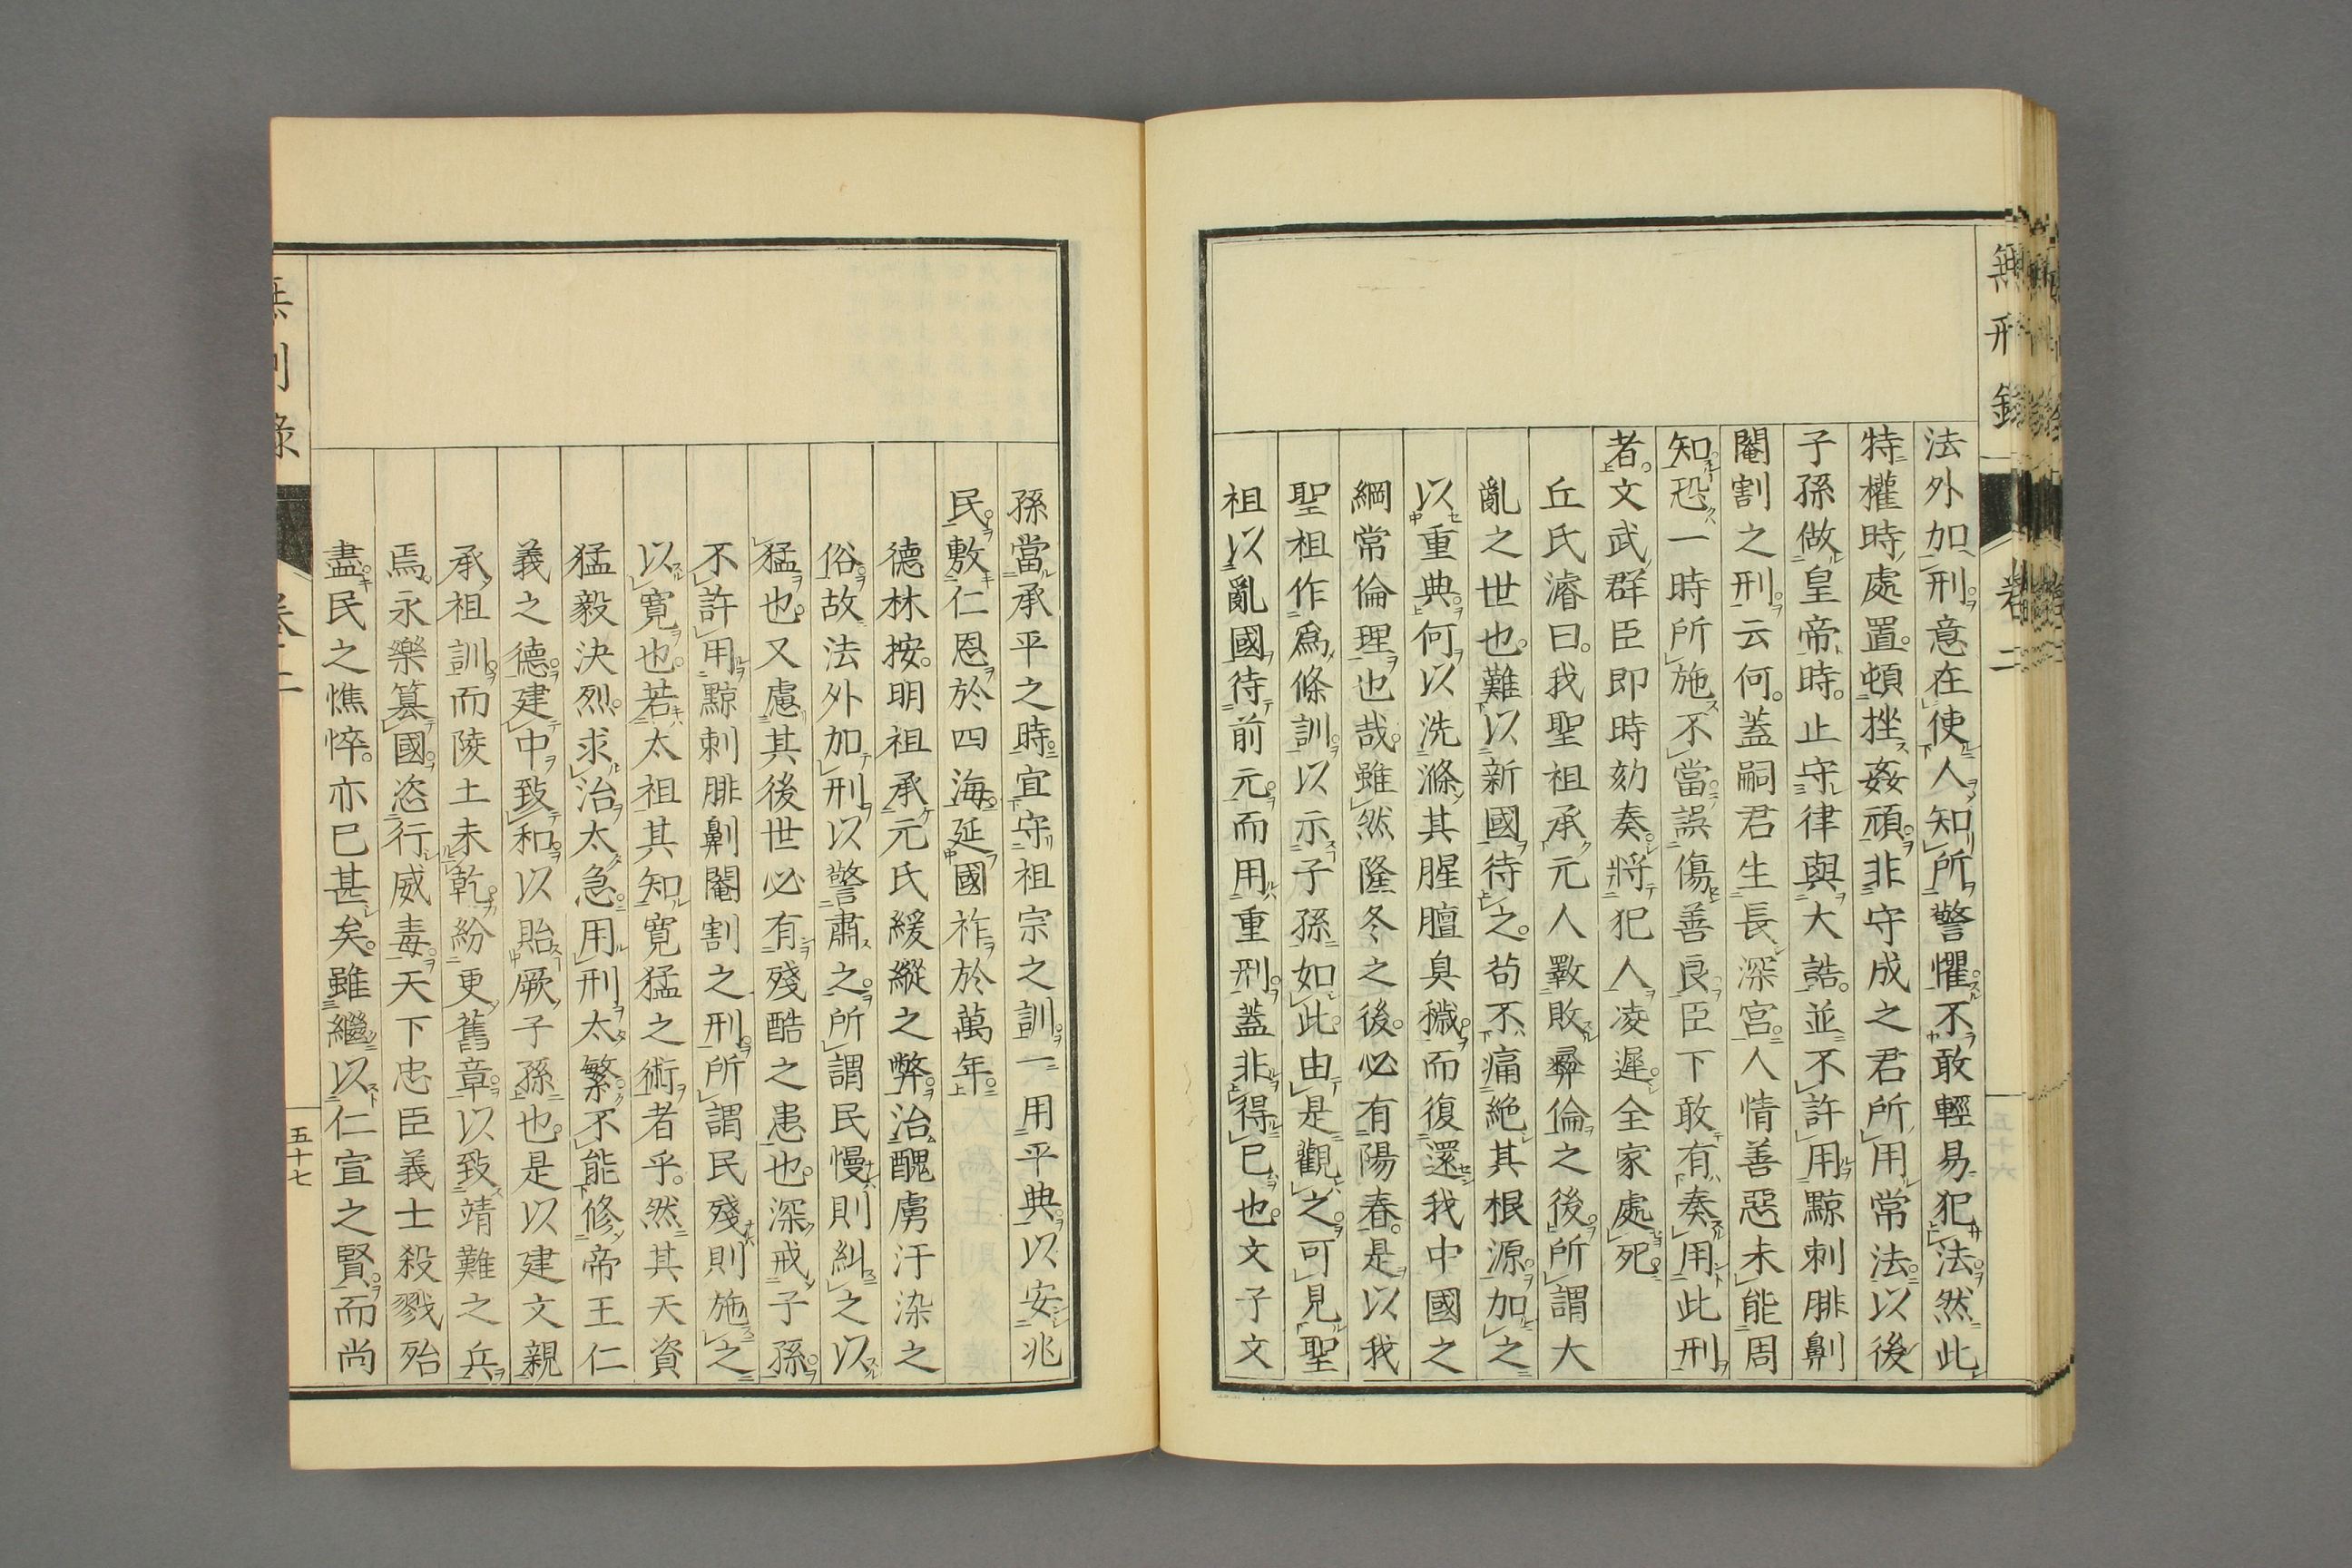 無刑錄
卷二
法外加刑意在使人知所警懼不敢輕易犯法然此
特權時處置頓挫姦頑非守成之君所用常法以後
子孫做皇帝時止守律與大誥並不許用黥刺腓劓
閹割之刑云何蓋嗣君生長深宮人情善惡未能周
知恐一時所施不當誤傷善良臣下敢有奏用此刑
者文武群臣即時劾奏將犯人凌遲全家處死
丘氏濬曰我聖祖承元人斁敗彝倫之後所謂大
亂之世也難以新國待之茍不痛絶其根源加之
以重典何以洗滌其腥膻臭穢而復還我中國之
綱常倫理也哉雖然隆冬之後必有陽春是以我
聖祖作爲條訓以示子孫如此由是觀之可見聖
祖以亂國待前元而用重刑蓋非得已也文子文
孫當承平之時宜守祖宗之訓一用平典以安兆
民敷仁恩於四海延國祚於萬年
德林按明祖承元氏緩縱之弊治醜虜汙染之
俗故法外加刑以警肅之所謂民慢則糾之以
猛也又慮其後世必有殘酷之患也深戒子孫
不許用黥刺腓劓閹割之刑所謂民殘則施之
以寬也若太祖其知寬猛之術者乎然其天資
猛毅決烈求治太急用刑太繁不能修帝王仁
義之德建中致和以貽厥子孫也是以建文親
承祖訓而陵土未乾紛更舊章以致靖難之兵
焉永樂篡國恣行威毒天下忠臣義士殺戮殆
盡民之憔悴亦已甚矣雖繼以仁宣之賢而尚
五十七